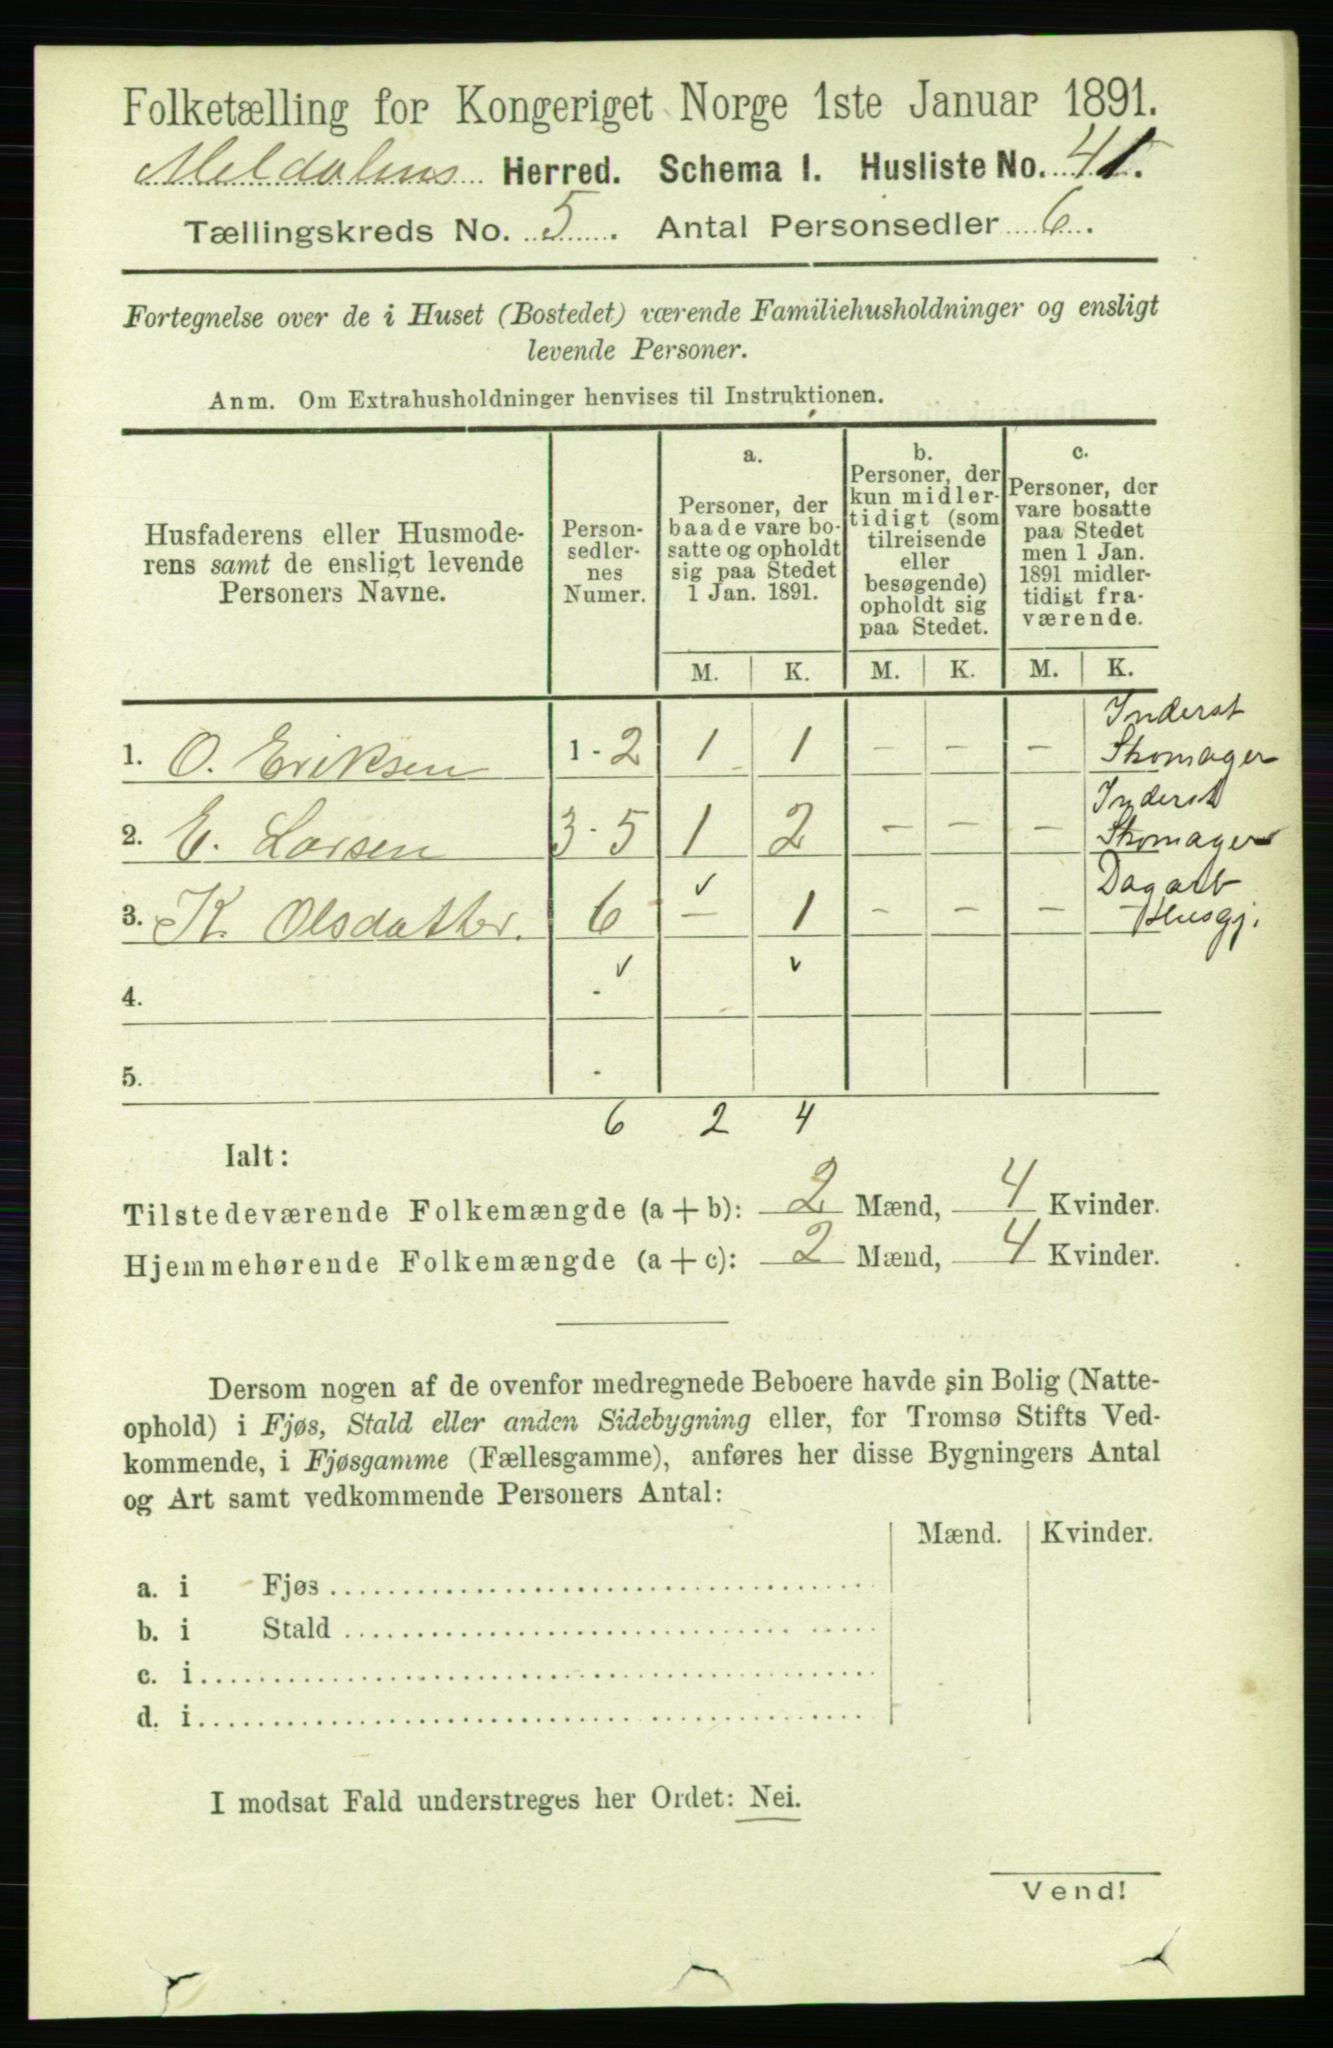 Folketælling for Kongeriget Norge 1ste Januar 1891.
Meldalens Herred. Schema 1. Husliste No. 41.
Tællingskreds No. 5. Antal Personsedler 6.
Fortegnelse over de i Huset (Bostedet) værende Familiehusholdninger og ensligt
levende Personer.
Anm. Om Extrahusholdninger henvises til Instruktionen.
Husfaderens eller Husmode-
rens samt de ensligt levende
Personers Navne.
Person-
sedler-
nes
Numer.
a.
Personer, der
baade vare bo-
satte og opholdt
sig paa Stedet
1 Jan. 1891.
b.
Personer, der
kun midler-
tidigt (som
tilreisende
eller
besøgende)
opholdt sig
paa Stedet.
c.
Personer, der
vare bosatte
paa Stedet
men 1 Jan.
1891 midler-
tidigt fra-
værende.
M. K. M. K. M. K.
Inderst
1. O. Eriksen 1 - 2 1 1 - - - Skomager
Inderst
2. E. Larsen 3 - 5 1 2 - - - Skomager
Dagarb
3. K. Olsdatter. 6 - 1 - - - Husgj.
4. -
5. -
6 2 4
Ialt:
Tilstedeværende Folkemængde (a + b): 2 Mænd, 4 Kvinder.
Hjemmehørende Folkemængde (a + c): 2 Mænd, 4 Kvinder.
Dersom nogen af de ovenfor medregnede Beboere havde sin Bolig (Natte-
ophold) i Fjøs, Stald eller anden Sidebygning eller, for Tromsø Stifts Ved-
kommende, i Fjøsgamme (Fællesgamme), anføres her disse Bygningers Antal
og Art samt vedkommende Personers Antal:
Mænd. Kvinder.
a. i Fjøs
b. i Stald
c. i
d. i
I modsat Fald understreges her Ordet: Nei.
Vend!